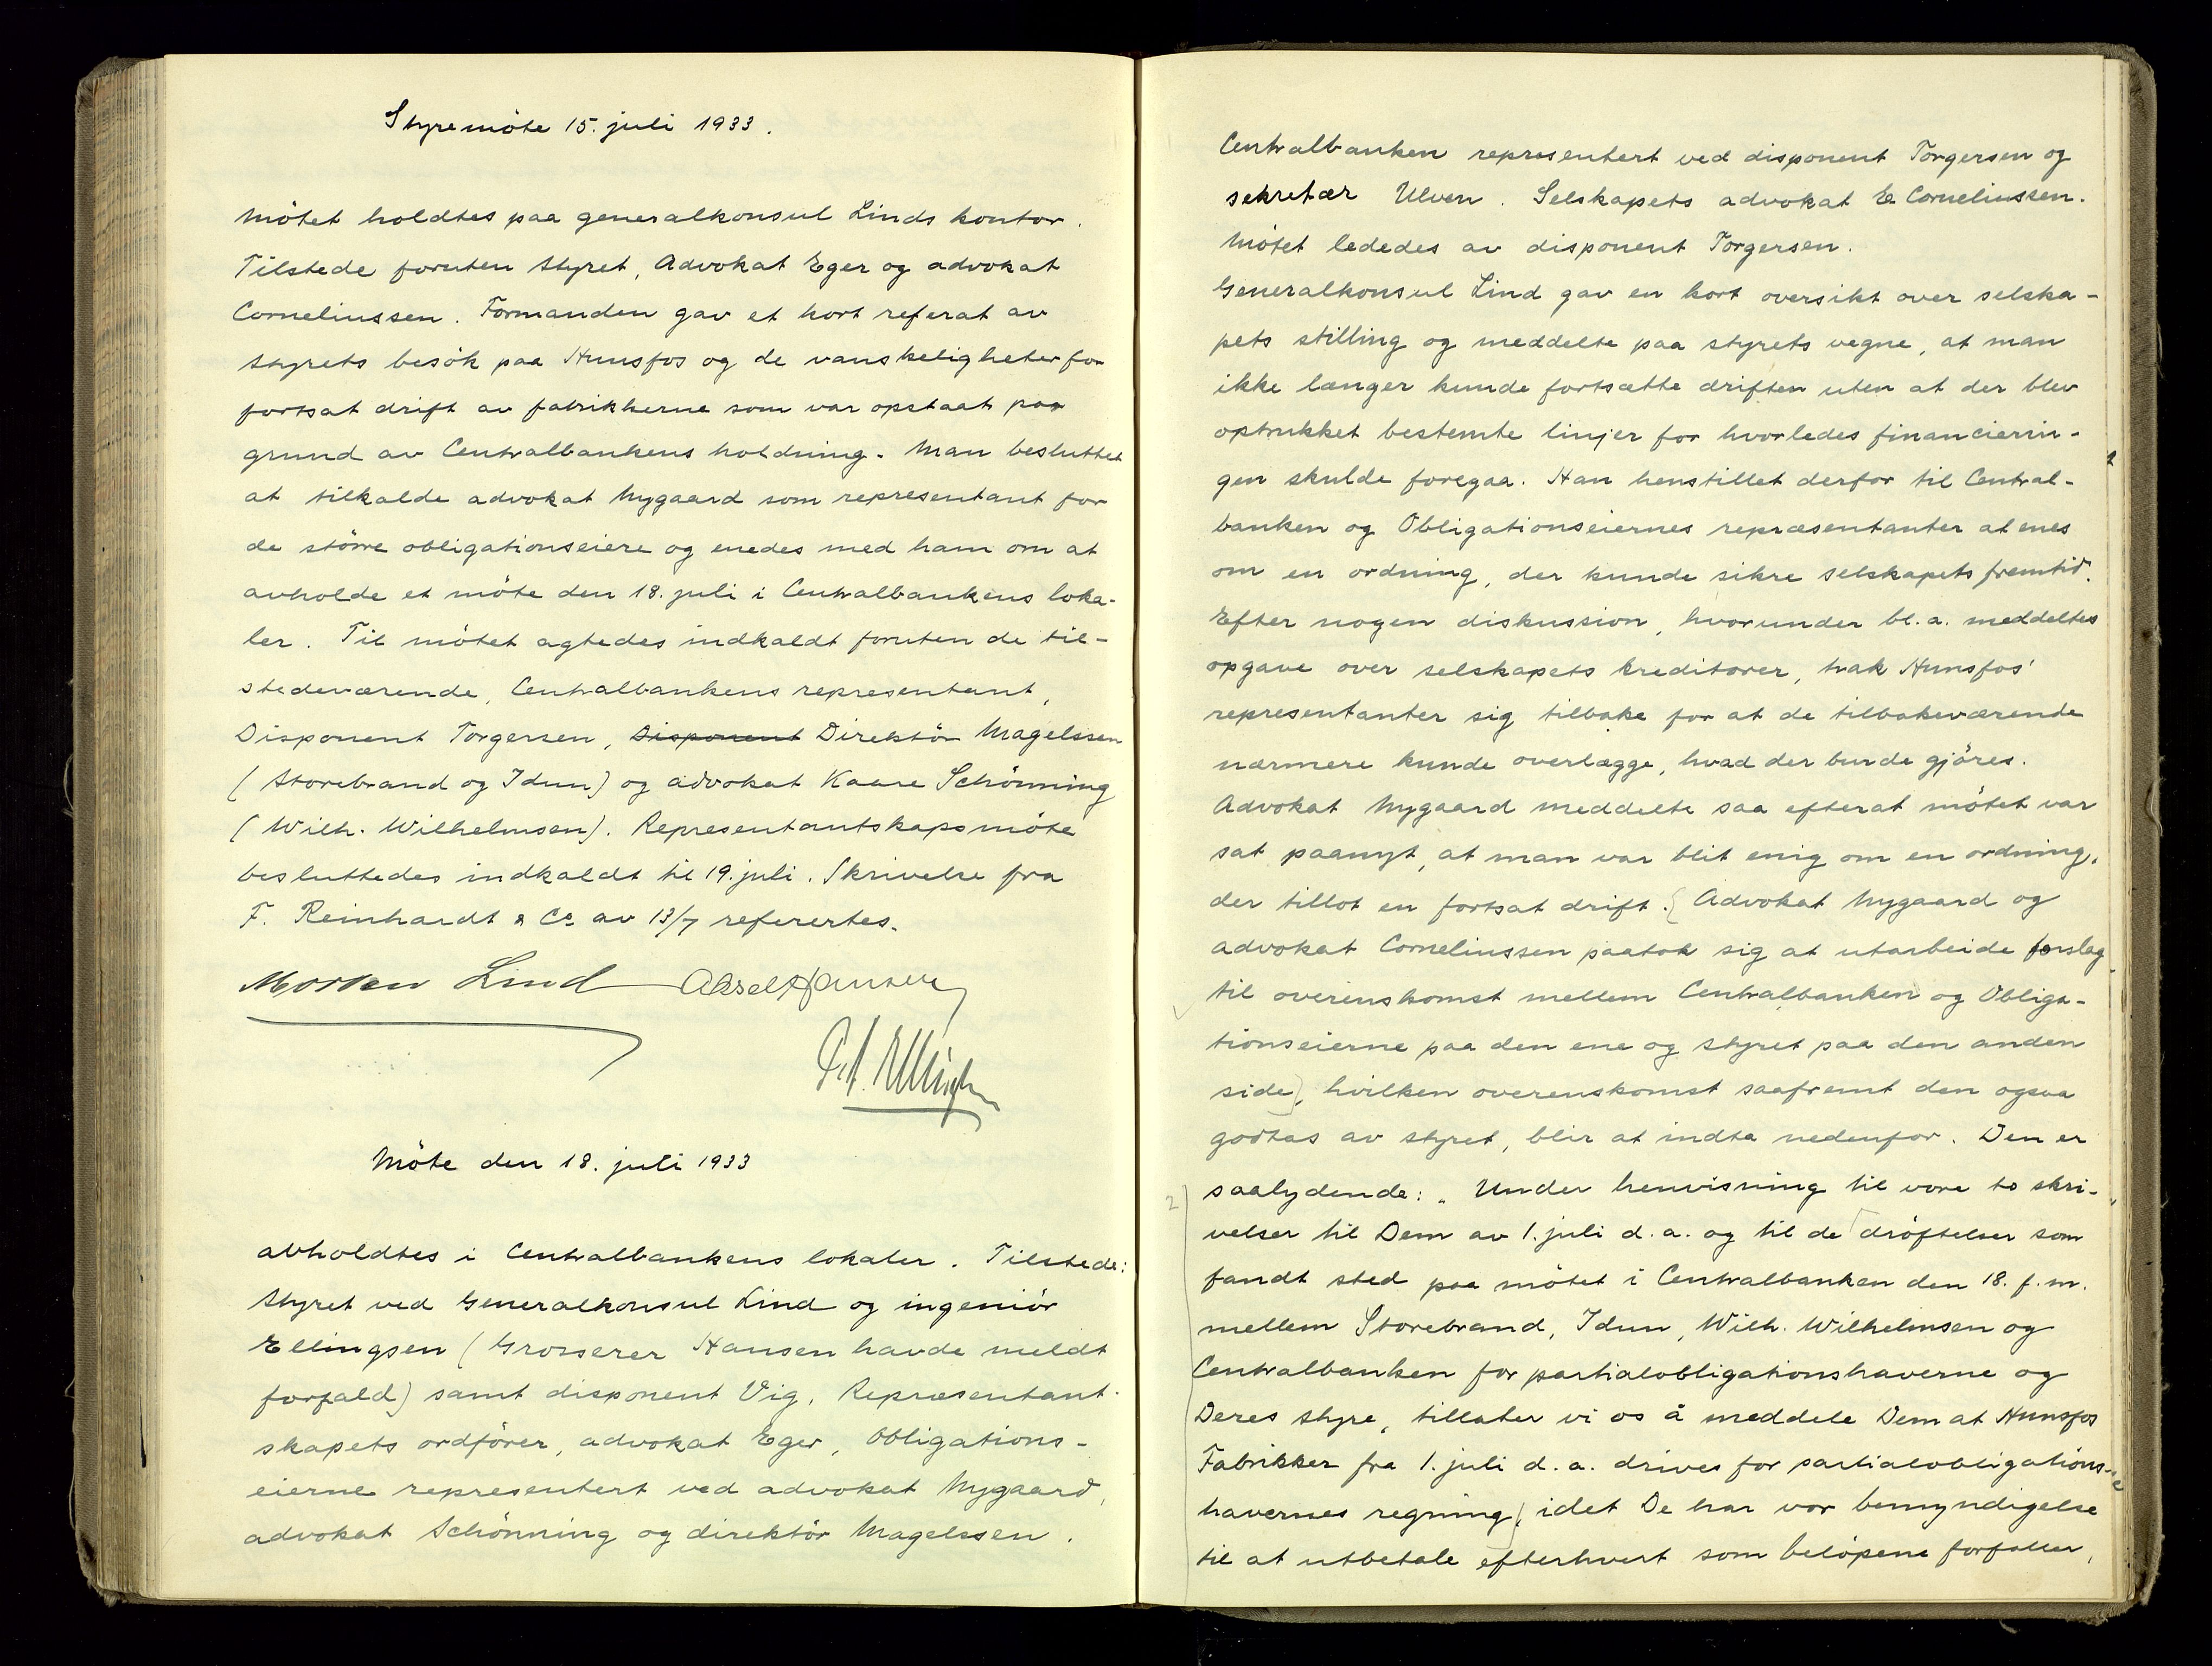 Styremöte 15. juli 1933.
Mötet holdtes paa generalkonsul Linds kontor.
Tilstede foruten styret, Advokat Eger og advokat
Corneliussen. Formanden gav et kort referat av
styrets besök paa Hunsfos og de vanskeligheter for
fortsat drift av fabrikkerne som var opstaat paa
grund av Centralbankens holdning. Man besluttet
at tilkalde advokat Nygaard som representant for
de större obligationseiere og enedes med ham om at
avholde et möte den 18. juli i Centralbankens loka-
ler. Til mötet agtedes indkaldt foruten de til-
stedeværende, Centralbankens representant,
Disponent Torgersen, Disponent Direktör Magelssen
(Storebrand og Idun) og advokat Kaare Schönning
(Wilh. Wilhelmsen). Representantskapsmöte
besluttedes indkaldt til 19. juli. Skrivelse fra
F. Reinhardt & Co av 13/7 referertes.
Morten Lind Aksel Hansen
Möte den 18. juli 1933
avholdtes i Centralbankens lokaler. Tilstede:
Styret ved Generalkonsul Lind og ingeniör
Ellingsen (Grosserer Hansen havde meldt
forfald) samt disponent Vig, Repræsentant-
skapets ordförer, advokat Eger, Obligations-
eierne representert ved advokat Nygaard,
advokat Schönning og direktör Magelssen.
Centralbanken representert ved disponent Torgersen og
sekretær Ulven. Selskapets advokat E Corneliussen.
Mötet lededes av disponent Torgersen.
Generalkonsul Lind gav en kort oversikt over selska-
pets stilling og meddelte paa styrets vegne, at man
ikke længer kunde fortsætte driften uten at der blev
optrukket bestemte linjer for hvorledes financierin-
gen skulde foregaa. Han henstillet derfor til Central-
banken og Obligationseiernes repræsentanter at enes
om en ordning, der kunde sikre selskapets fremtid.
Efter nogen diskussion, hvorunder bl.a. meddeltes
opgave over selskapets kreditorer, trak Hunsfos'
representanter sig tilbake for at de tilbakeværende
nærmere kunde overlægge, hvad der burde gjöres.
Advokat Nygaard meddelte saa efterat mötet var
sat paanyt, at man var blit enig om en ordning,
der tillot en fortsat drift. (Advokat Nygaard og
advokat Corneliussen paatok sig at utarbeide forslag
til overenskomst mellem Centralbanken og Obliga-
tionseierne paa den ene og styret paa den anden
side), hvilken overenskomst saafremt den ogsaa
godtas av styret, blir at indta nedenfor. Den er
2) saalydende: „Under henvisning til vore to skri-
velser til Dem av 1. juli d.a. og til de dröftelser som
fandt sted paa mötet i Centralbanken den 18. f.m.
mellem Storebrand, Idun, Wilh. Wilhelmsen og
Centralbanken for partialobligationshaverne og
Deres styre, tillater vi os å meddele Dem at Hunsfos
Fabrikker fra 1. juli d.a. drives for partialobligations-
havernes regning, idet De har vor bemyndigelse
til at utbetale efterhvert som belöpene forfaller,